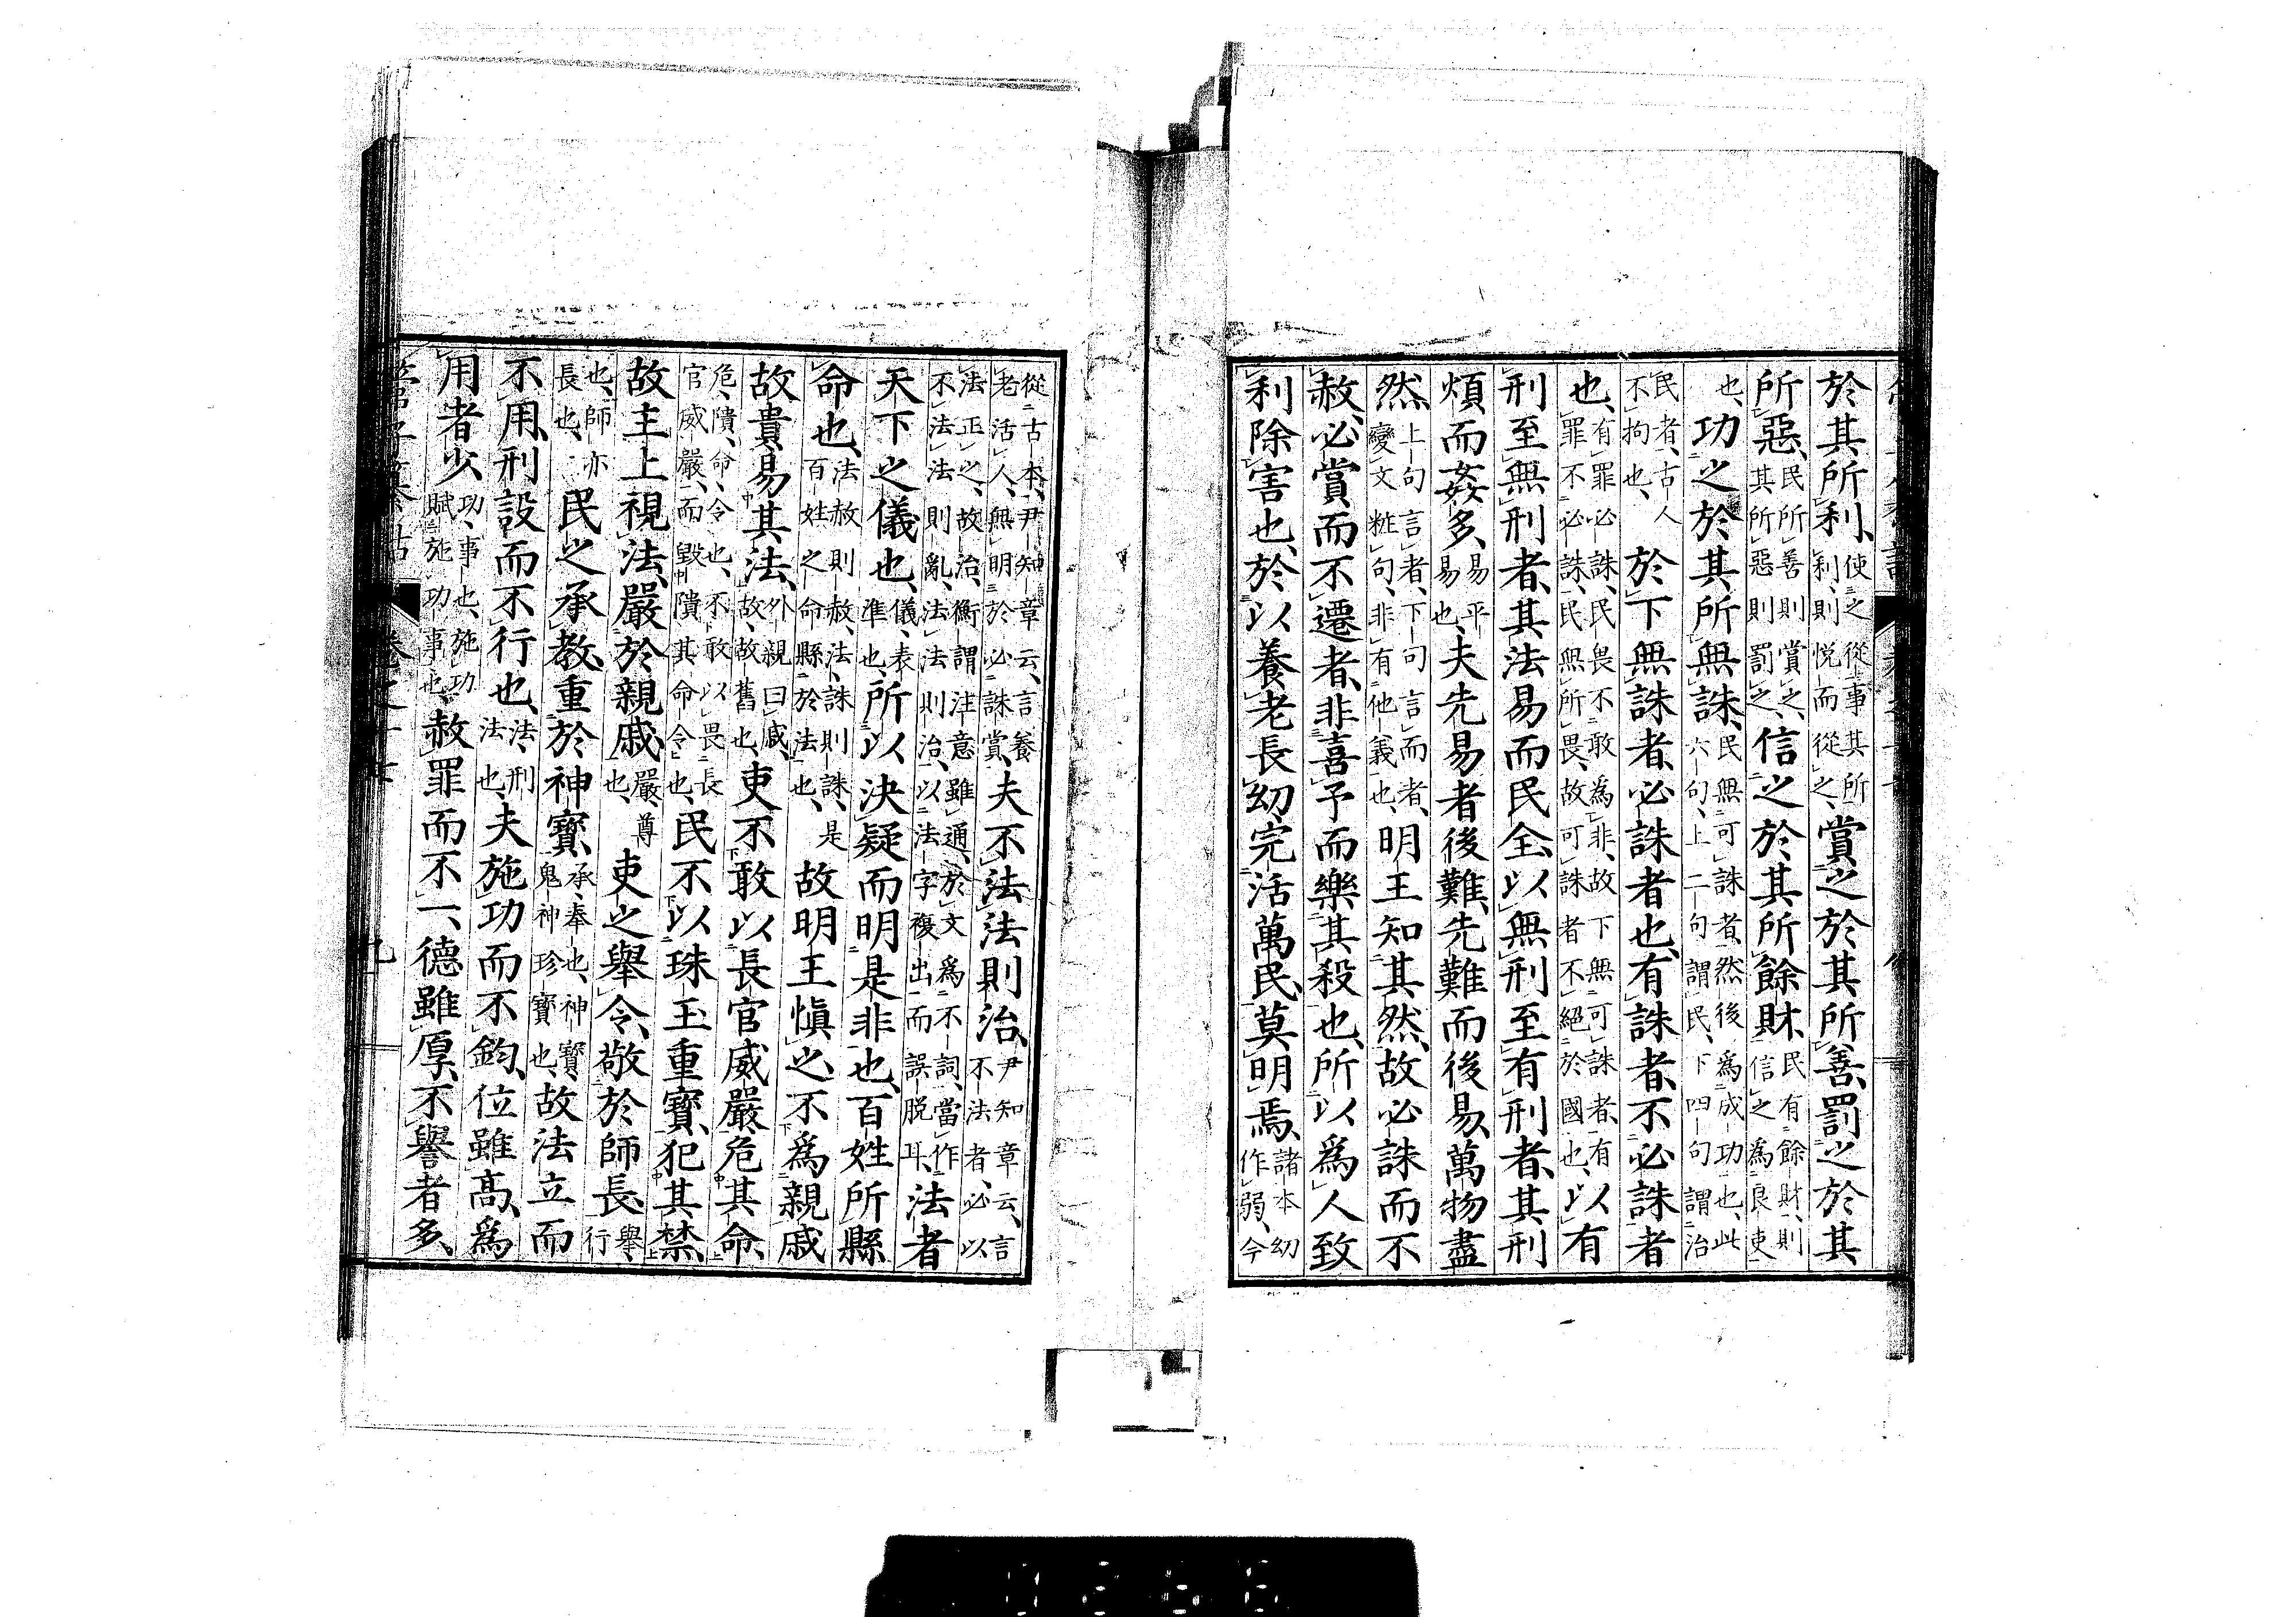 於其所利、利、則悅而從之、使之從事其所賞之於其所善、罰之於其
所惡、民所善則賞之、其所惡則罰之、信之於其所餘財、民有餘財、則信之爲良吏
也、功之於其所無誅、民無可誅者、然後爲成功也、此六句、上二句謂民、下四句謂治
民者、古人不拘也、於下無誅者、必誅者也、有誅者、不必誅者
也、有罪必誅、民畏不敢爲非、故下無可誅者、有罪不必誅、民無所畏、故可誅者不絕於國也、以有
刑至無刑者、其法易而民全、以無刑至有刑者、其刑
煩而姦多、易平易也、夫先易者後難、先難而後易、萬物盡
然、上句言者、下句言而者、變文粧句、非有他義也、明王知其然、故必誅而不
赦、必賞而不遷者、非喜予而樂其殺也、所以爲人致
利除害也、於以養老長幼、完活萬民、莫明焉、諸本幼作弱、今
從古本、尹知章云、言養老活人、無明於必誅賞、夫不法法則治、尹知章云、言不法者、必以
法正之、故治、衡謂注意雖通、於文爲不詞、當作不法法則亂、法法則治、以法字複出而誤脫耳、法者
天下之儀也、儀、表準也、所以決疑而明是非也、百姓所縣
命也、法赦則赦、法誅則誅、是百姓之命縣於法也、故明王愼之、不爲親戚
故貴易其法、外親曰戚、故、故舊也、吏不敢以長官威嚴、危其命、
危、隤、命、令也、不敢以畏長官威嚴、而毀隤其命令也、民不以珠玉重寶、犯其禁、
故主上視法、嚴於親戚、嚴、尊也、吏之舉令、敬於師長、舉、行
也、師亦長也、民之承教、重於神寶、承、奉也、神寶、鬼神珍寶也、故法立而
不用、刑設而不行也、法、刑法也、夫施功而不鈞、位雖高、爲
用者少、功、事也、施功、賦施功事也、赦罪而不一、德雖厚、不譽者多、